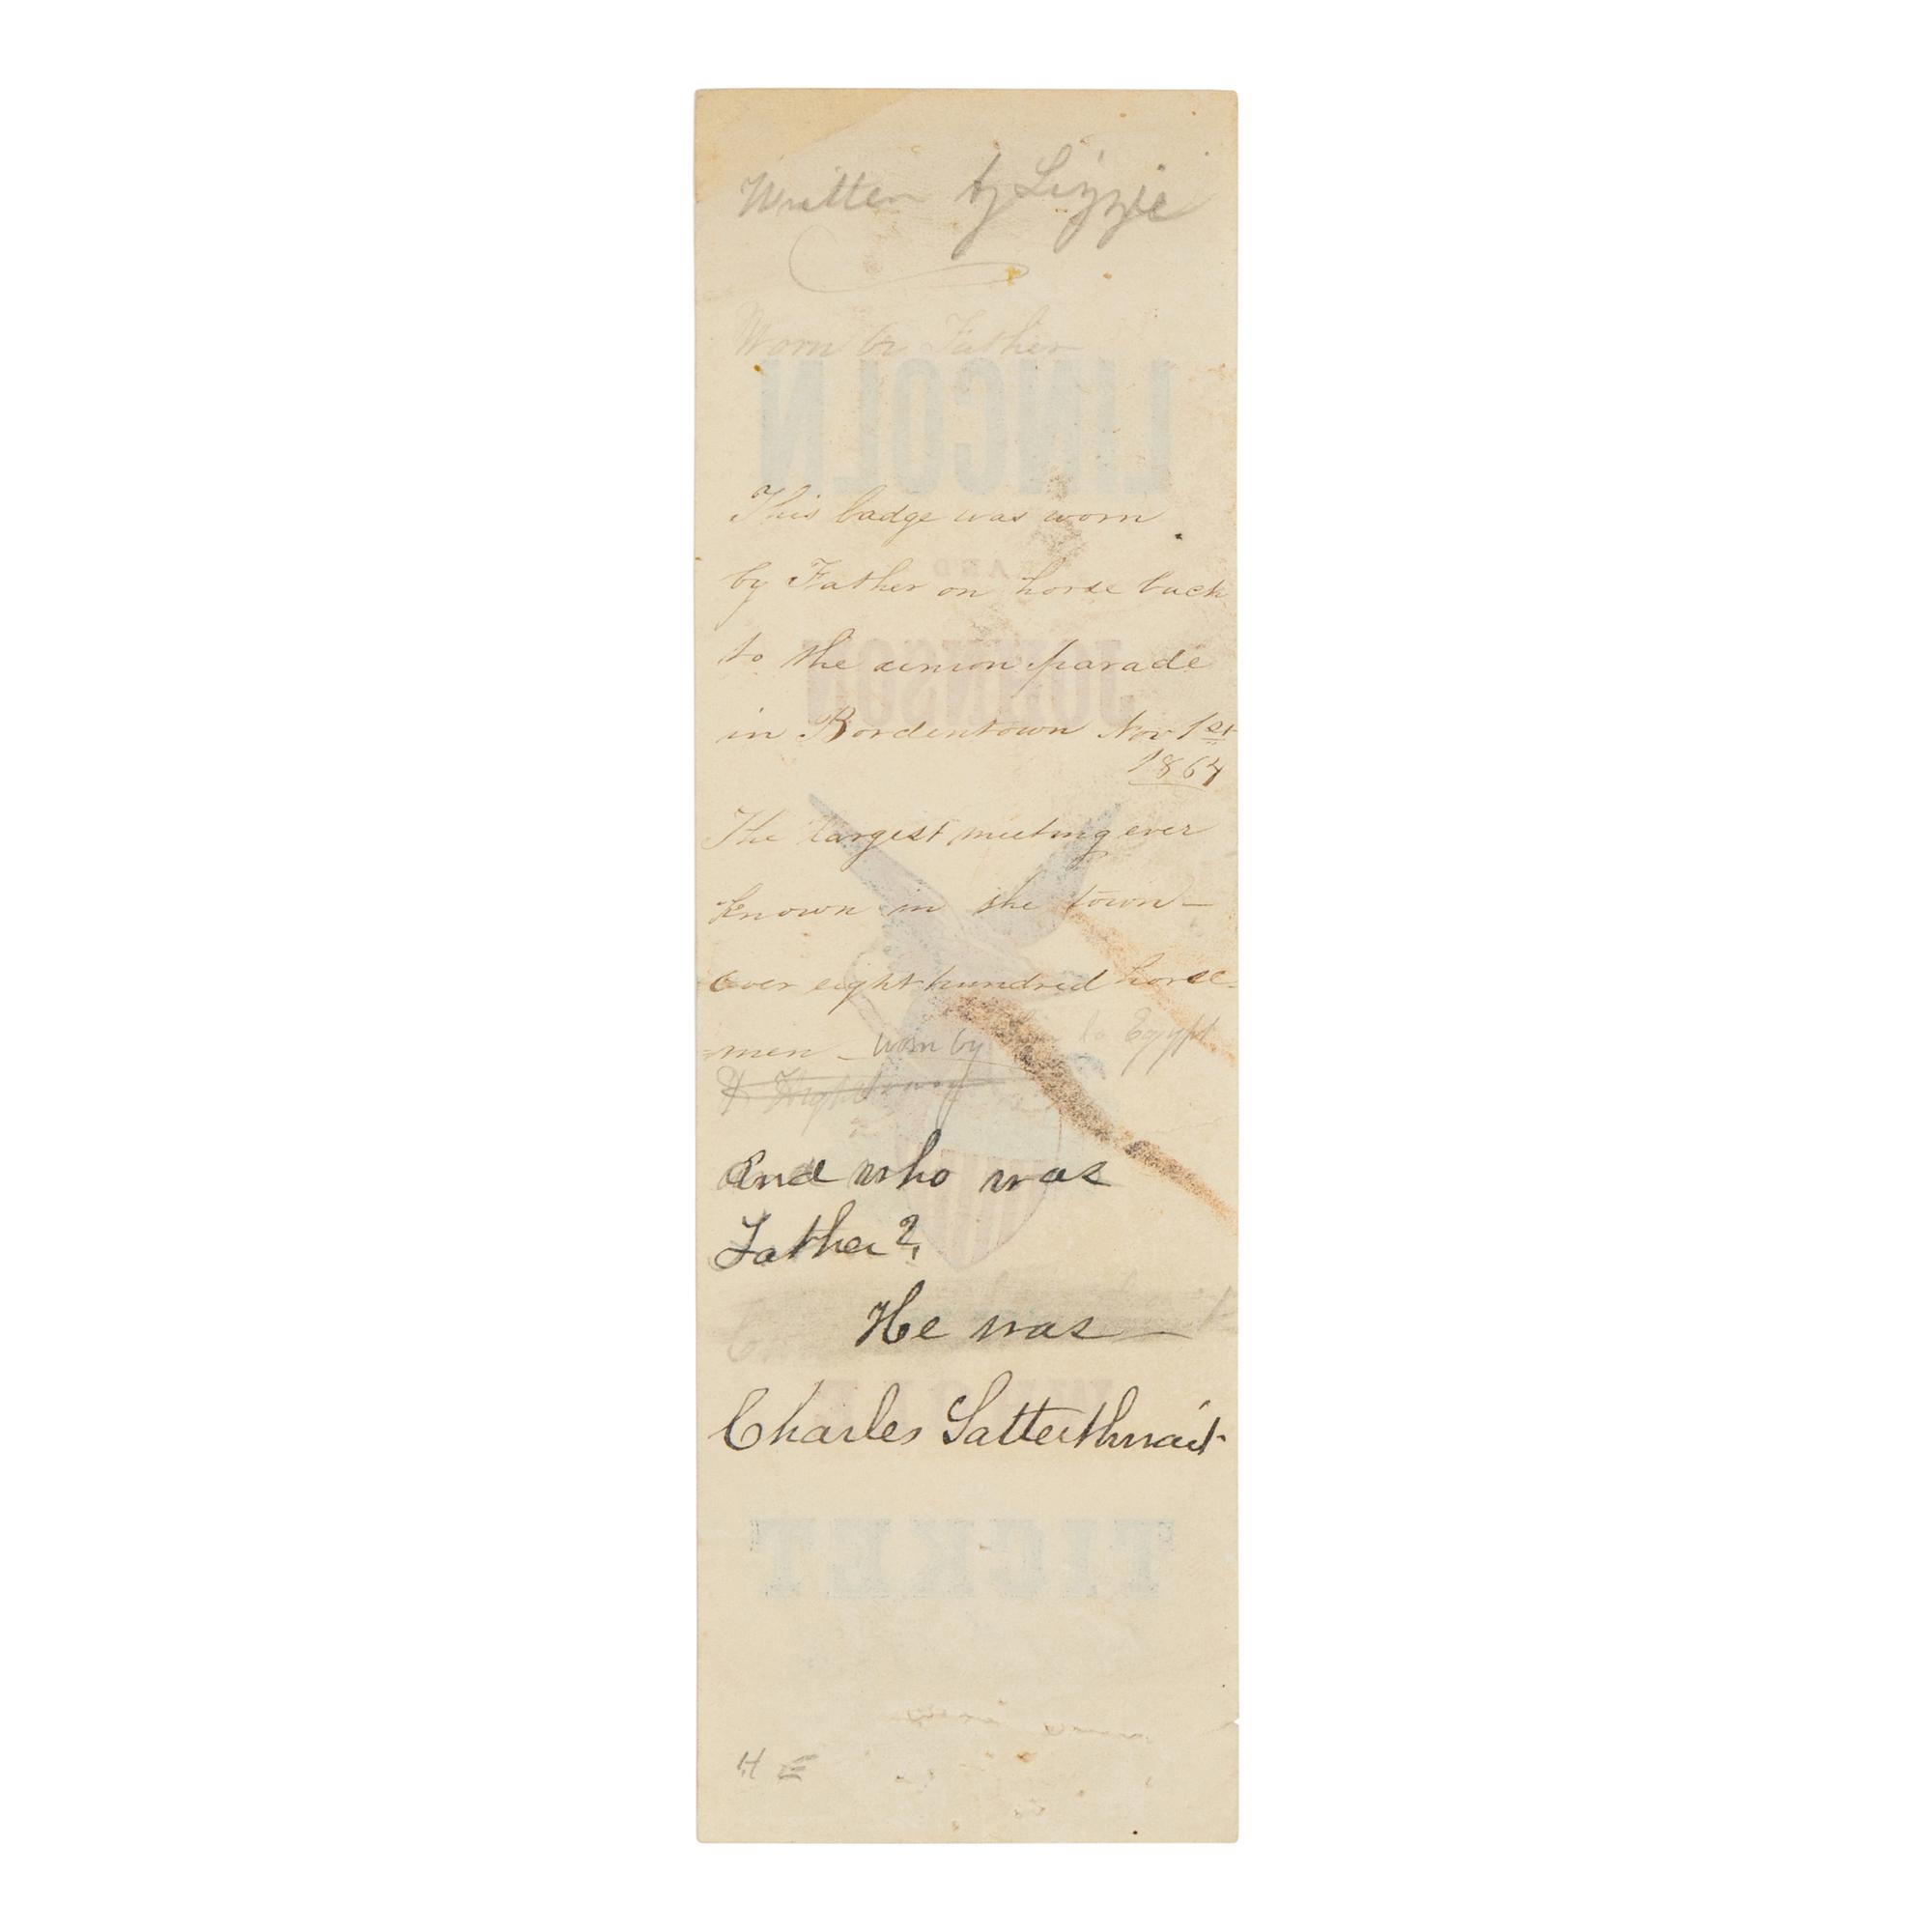 Written by Lizzie
Worn by Father
LINCOLN
This badge was worn
AND
by Father on horse back
to the union parade
JOHNSON
in Bordentown Nov 1st
1864
The largest meeting ever
known in the town—
Over eight hundred horse-
men - worn by to Egypt
And who was
Father?
He was—
Charles Satterthwait
TICKET
H E